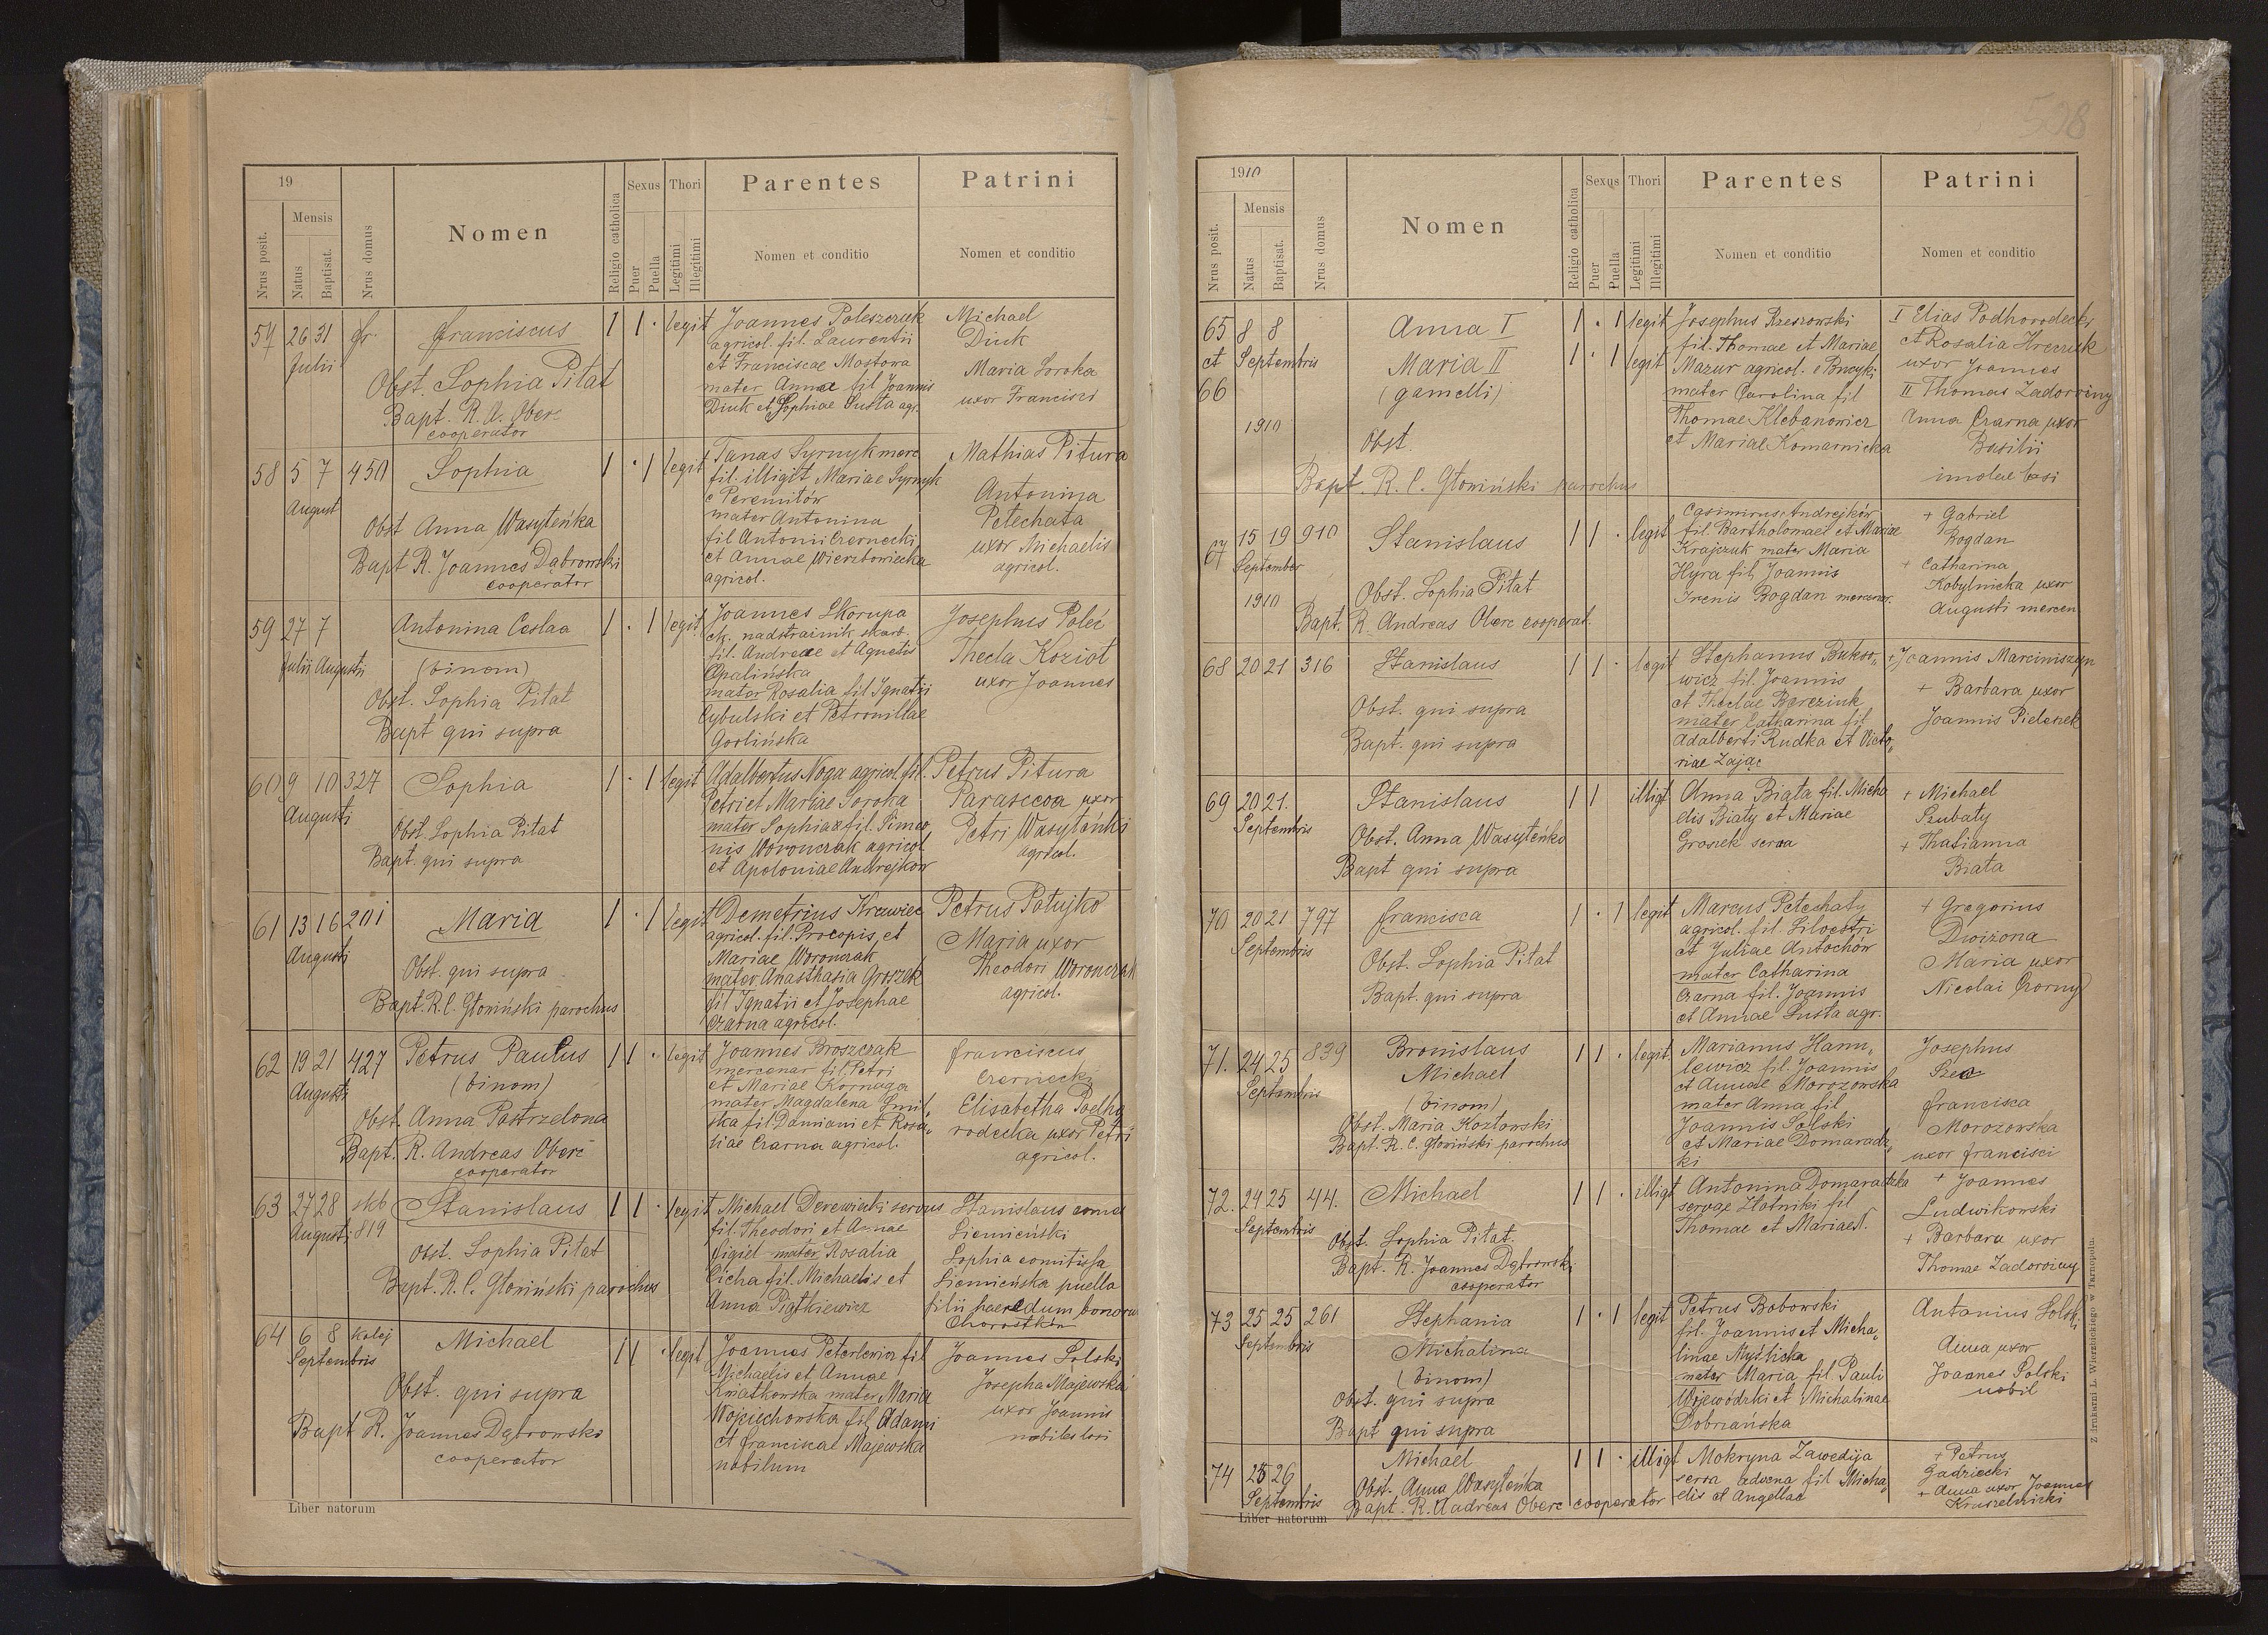 19
Nrus posit.
Mensis
Natus
Baptisat.
Nrus domus
Nomen
Religio catholica
Sexus
Puer
Puella
Thori
Legitimi
Illegitimi
Parentes
Nomen et conditio
Patrini
Nomen et conditio
57 26 31 fr. Franciscus 1 1 · legit
Julii
Obst. Sophia Pitat
Bapt. R. A. Oberc
cooperator
Joannes Poleszczuk
agricol. fil. Laurentii
et Franciscae Mostowa
mater Anna fil Joannis
Diuk et Sophiae Susta agr.
Michael
Diuk
Maria Soroka
uxor Francisci
58 5 7 450 Sophia 1 · 1 legit
August
Obst Anna Wasyleńka
Bapt R. Joannes Dąbrowski
cooperator
Tanas Syrnyk merc
fil. illigit Mariae Syrnyk
e Peremitów
mater Antonina
fil Antonii Czernecki
et Annae Wierzbowiecka
agricol.
Mathias Pitura
Antonina
Petechata
uxor Michaelis
agricol.
59 27 7 Antonina Ceslaa 1 · 1 legit
Julii Augusti
(binom)
Obst. Sophia Pitat
Bapt qui supra
Joannes Skorupa
ck. nadstrażnik skarb.
fil. Andreae et Agnetis
Opalińska
mater Rosalia fil Ignatii
Cybulski et Petronillae
Gorlińska
Josephus Poleć
Thecla Kozioł
uxor Joannes
60 9 10 327 Sophia 1 · 1 legit
Augusti
Obst. Sophia Pitat
Bapt. qui supra
Adalbertus Noga agricol fil.
Petri et Mariae Soroka
mater Sophia fil. Simeo
nis Woronczak agricol
et Apoloniae Andrejków
Petrus Pitura
Parascoa uxor
Petri Wasyleńki
agricol.
61 13 16 201 Maria 1 · 1 legit
Augusti
Obst. qui supra
Bapt. R. C. Głowiński parochus
Demetrius Krawiec
agricol. fil. Procopis et
Mariae Woronczak
mater Anasthasia Groszek
fil Ignatii et Josephae
Czarna agricol.
Petrus Potujko
Maria uxor
Theodori Woronczak
agricol.
62 19 21 427 Petrus Paulus 1 1 · legit
Augusti
(binom)
Obst. Anna Postrzelona
Bapt. R. Andreas Oberc
cooperator
Joannes Broszczak
mercenar fil Petri
et Mariae Kornaga
mater Magdalena Smil„
ska fil Damiani et Rosa„
liae Czarna agricol.
Franciscus
Czerniecki
Elisabetha Podho
rodecka uxor Petri
agricol.
63 27 28 skb Stanislaus 1 1 · legit
Augusti 819
Obst. Sophia Pitat
Bapt. R. C. Głowiński parochus
Michael Derewiecki servus
fil. Theodori et Annae
Figiel mater Rosalia
Cicha fil. Michaelis et
Anna Piątkiewicz
Stanislaus comes
Siemieński
Sophia comitissa
Siemieńska puella
filii haeredum bonorum
Chorostków
64 6 8 kolej Michael 1 1 · legit
Septembris
Obst. qui supra
Bapt R. Joannes Dąbrowski
cooperator
Joannes Peterlewicz fil
Michaelis et Annae
Kwiatkowska mater Maria
Wojciechowska fil Adami
et Franciscae Majewska
nobilium
Joannes Solski
Josepha Majewska
uxor Joannis
nobiles loci
Liber natorum
508
1910
Nrus posit.
Mensis
Natus
Baptisat.
Nrus domus
Nomen
Religio catholica
Sexus
Puer
Puella
Thori
Legitimi
Illegitimi
Parentes
Nomen et conditio
Patrini
Nomen et conditio
65 8 8 Anna I 1 · 1 legit
et Septembris Maria II 1 · 1 legit
66 (gamelli)
1910
Obst.
Bapt. R. C. Głowiński parochus
Josephus Rzeszowski
fil. Thomae et Mariae
Mazur agricol. e Bucyki
mater Carolina fil
Thomae Klebanowicz
et Mariae Komarnicka
I Elias Podhorodecki
et Rosalia Hreczuk
uxor Joannes
II Thomas Zadorożny
Anna Czarna uxor
Basilii
incolae loci
67 15 19 910 Stanislaus 1 1 · legit
September
1910
Obst. Sophia Pitat
Bapt. R. Andreas Oberc cooperat.
Casimirus Andrejków
fil. Bartholomaei et Mariae
Krajczuk mater Maria
Hyra fil Joannis
Irenis Bogdan mercenar.
+ Gabriel
Bogdan
+ Catharina
Kobylnicka uxor
Augusti mercen
68 20 21 316 Stanislaus 1 1 · legit
Obst. qui supra
Bapt. qui supra
Stephanus Bukso„
wicz fil. Joannis
et Theclae Bereziuk
mater Catharina fil
Adalberti Rudka et Victo„
riae Zając
+ Joannis Marciniszyn
+ Barbara uxor
Joannis Pielenek
69 20 21. Stanislaus 1 1 illigt
Septembris
Obst. Anna Wasyleńko
Bapt qui supra
Anna Biała fil. Micha
elis Biały et Mariae
Groszek serva
+ Michael
Szubaty
+ Thatianna
Biała
70 20 21 797 Francisca 1 · 1 legit
Septembris
Obst. Sophia Pitat
Bapt. qui supra
Marcus Petechaty
agricol. fil. Silvestri
et Juliae Antochów
mater Catharina
Czarna fil. Joannis
et Annae Susta agr.
+ Gregorius
Dwiżona
Maria uxor
Nicolai Czorny
71. 24 25 839 Bronislaus 1 1 · legit.
Septembris Michael
(binom)
Obst. Maria Kozłowski
Bapt. R. C. Głowiński parochus
Marianus Hanu„
lewicz fil. Joannis
et Annae Morozowska
mater Anna fil
Joannis Solski
et Mariae Domaradz„
ki
Josephus
Francisca
Morozowska
uxor Francisci
72. 24 25 44. Michael 1 1 · illigt
Septembris
Obst. Sophia Pitat.
Bapt. R. Joannes Dąbrowski
cooperator
Antonina Domaradzka
servae Złotniki fil
Thomae et Mariae N.
+ Joannes
Ludwikowski
+ Barbara uxor
Thomae Zadorożny
73 25 25 261 Stephania 1 · 1 legit
Septembris
Michalina
(binom)
Obst. qui supra
Bapt qui supra
Petrus Bobowski
fil. Joannis et Micha„
linae Myślicka
mater Maria fil Pauli
Wojewódzki et Michalinae
Dobrzańska
Antonius Solski
Anna uxor
Joannes Polski
nobil
74 25 26 Michael 1 1 · illigt
Septembris
Obst. Anna Wasyleńka
Bapt. R. Andreas Oberc cooperator
Mokryna Zawedija
serva advena fil Micha„
elis et Angellae
+ Petrus
Gadziecki
+ Anna uxor Joannes
Kruszelnicki
Liber natorum
Z drukarni L. Wierzbickiego w Tarnopolu.